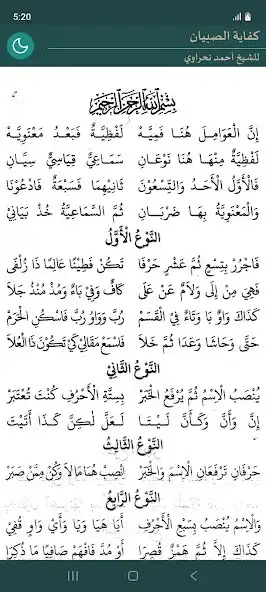 5:20
كفاية الصبيان
للشيخ أحمد نحراوي
بِسْمِ اللَّهِ الرَّحْمَنِ الرَّحِيمِ
إِنَّ الْعَوَامِلَ هُنَا قَمِيَّه لَفْظِيَّةٌ فَبَعْدُ مَعْنَوِيَّه
لَفْظِيَّةٌ مِنْهَا هُنَا نَوْعَانِ سَمَاعِيٌّ قِيَاسِيٌّ سِيَّانِ
فَالْأَوَّلُ الْأَحَدُ وَالتِّسْعُوْنَ ثَانِيْهِمَا فَسَبْعَةٌ فَادْعُوْنَا
وَالْمَعْنَوِيَّةُ بِهَا ضَرْبَانِ ثُمَّ السَّمَاعِيَّةُ خُذْ بَيَانِيْ
النَّوْعُ الْأَوَّلُ
فَاجْرُرْ بِتِسْعٍ ثُمَّ عَشْرٍ حَرْفَا تَكُنْ فَطِيْنًا عَالِمًا ذَا زُلْفَى
فَهِيَ مِنْ إِلَى وَلَامٌ عَنْ عَلَى كَافٌ وَفِيْ بَاءٌ وَمُذْ مُنْذُ جَلَا
كَذَاكَ وَاوٌ بَا وَتَاءٌ فِي الْقَسَمْ رُبَّ وَوَاوُ رُبَّ فَاسْكُنِ الْحَرَمْ
حَتَّى وَحَاشَا وَعَدَا ثُمَّ خَلَا فَاسْمَعْ مَقَالِيْ كَيْ تَكُوْنَ ذَا الْعُلَا
النَّوْعُ الثَّانِيْ
يُنْصَبُ الْاِسْمُ ثُمَّ يُرْفَعُ الْخَبَرْ بِسِتَّةِ الْأَحْرُفِ كُنْتَ تُعْتَبَرْ
إِنَّ وَأَنَّ وَكَأَنَّ لَيْتَا لَعَلَّ لٰكِنَّ كَذَا أَتَيْتَ
النَّوْعُ الثَّالِثُ
حَرْفَانِ تَرْفَعَانِ الْاِسْمَ وَالْخَبَرْ اِنْصِبْ هُمَا مَا لَا وَكُنْ مِمَّنْ صَبَرْ
النَّوْعُ الرَّابِعُ
وَالْاِسْمُ يُنْصَبُ بِسَبْعِ الْأَحْرُفِ أَيَا هَيَا وَيَا وَأَيْ وَاوٍ قُفِيْ
كَذَاكَ إِلَّا ثُمَّ هَمْزٌ قُصِرَا أَوْ مُدَّ فَافْهَمْ صَافِيًا مَا ذُكِرَا